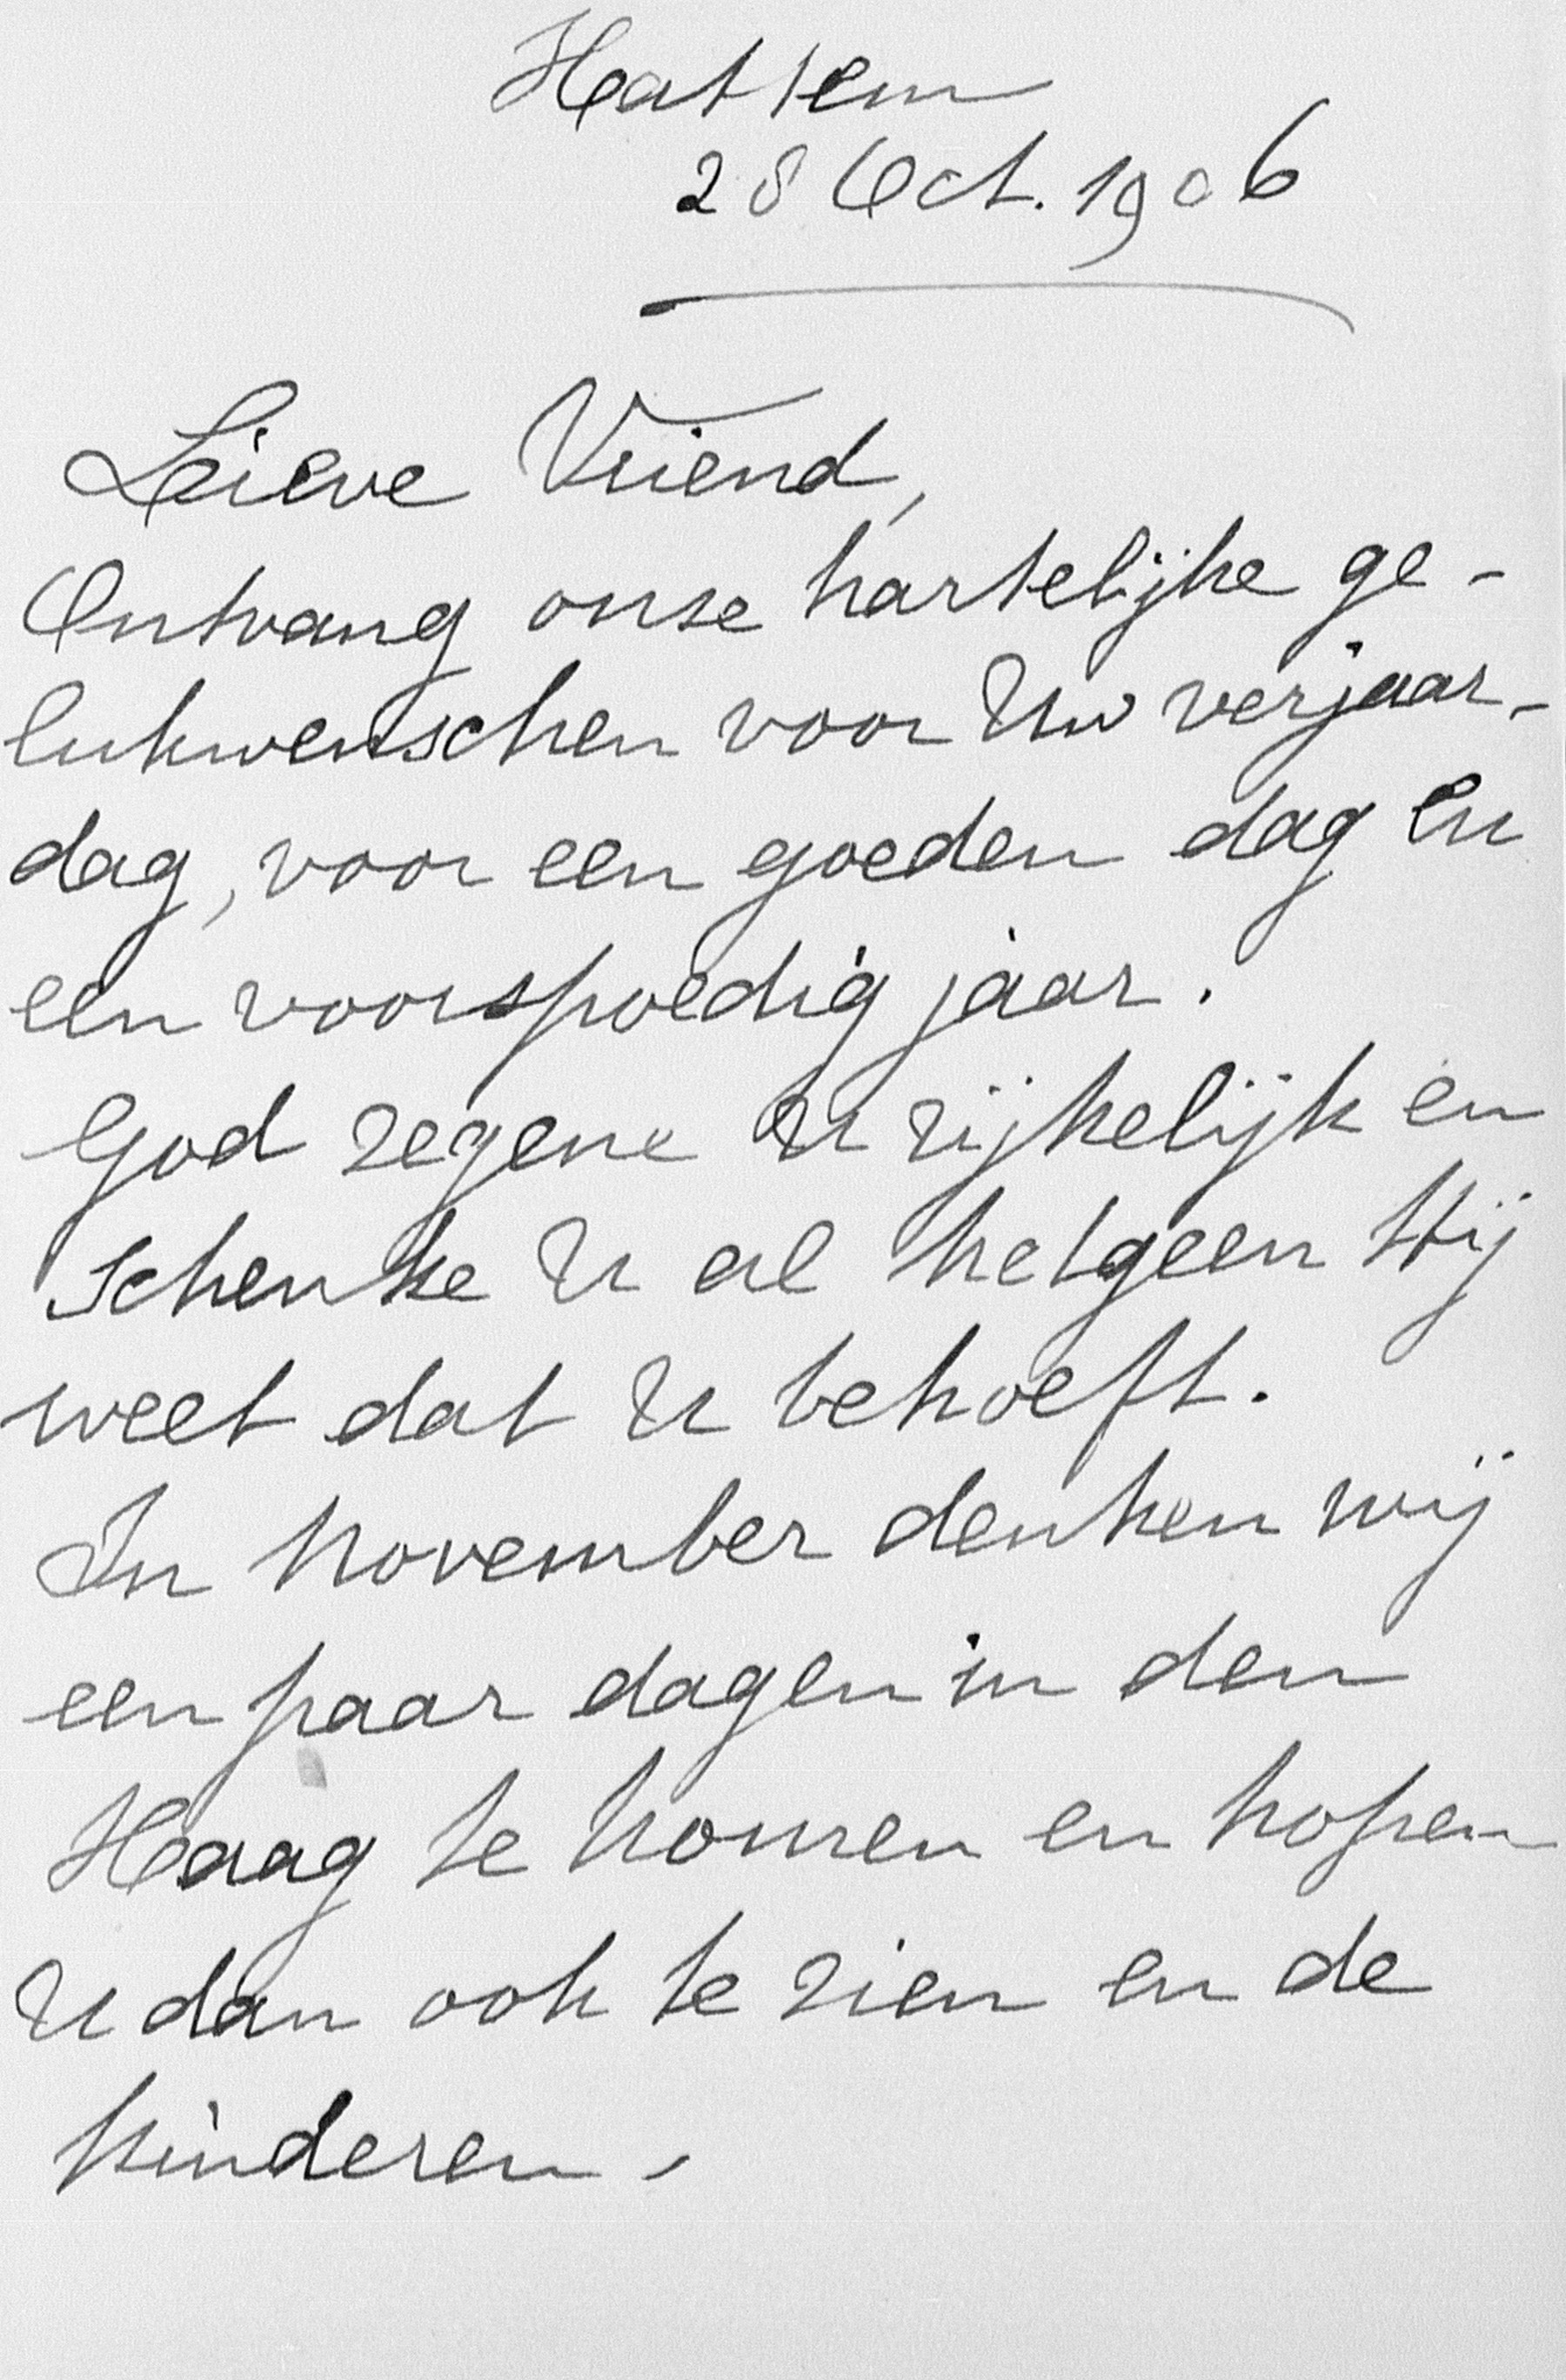 Hattem
28 Oct. 1906
Lieve Vriend,
Ontvang onze hartelijke ge-
lukwenschen voor Uw verjaar-
dag, voor een goeden dag en
een voorspoedig jaar.
God zegene U rijkelijk en
schenke U al hetgeen Hij
weet dat U behoeft.
In November denken wij
een paar dagen in den
Haag te komen en hopen
U dan ook te zien en de
kinderen,